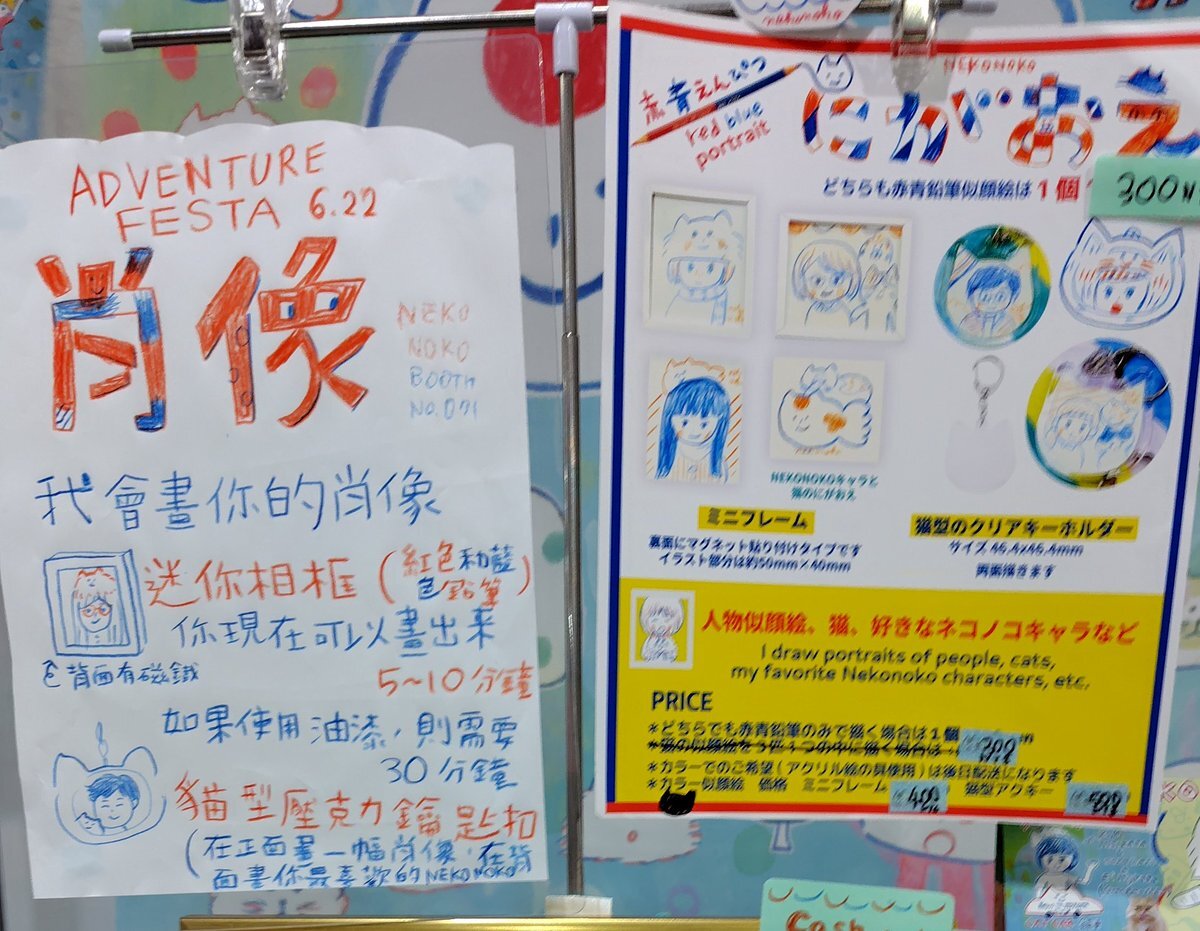 ADVENTURE
FESTA 6.22
肖像
NEKO
NOKO
BOOTH
NO.071
我會畫你的肖像
迷你相框(紅色和藍
色鉛筆)
你現在可以畫出來
背面有磁鐵
5~10分鐘
如果使用油漆,則需要
30分鐘
貓型壓克力鑰匙扣
(在正面畫一幅肖像,在背
面畫你最喜歡的NEKONOKO
NEKONOKO
赤青えんぴつ
red blue
portrait
にがおえ
どちらも赤青鉛筆似顔絵は1個
300
NEKONOKOキャラと
猫のにがおえ
ミニフレーム
裏面にマグネット貼り付けタイプです
イラスト部分は約50mm×40mm
猫型のクリアキーホルダー
サイズ46.4x46.4mm
両面描きます
人物似顔絵、猫、好きなネコノコキャラなど
I draw portraits of people, cats,
my favorite Nekonoko characters, etc.
PRICE
*どちらでも赤青鉛筆のみで描く場合は1個
*カラーでのご希望(アクリル絵の具使用)は後日配送になります
*カラー似顔絵 価格 ミニフレーム 猫型アクキー
Cash